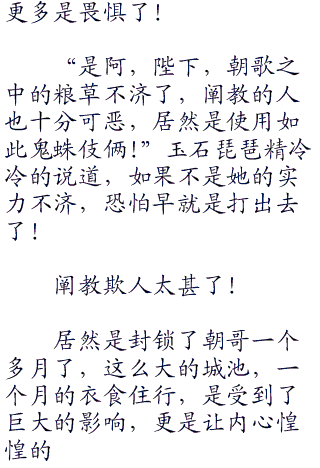 更多是畏惧了！
“是阿，陛下，朝歌之
中的粮草不济了，阐教的人
也十分可恶，居然是使用如
此鬼蛛伎俩！”玉石琵琶精冷
冷的说道，如果不是她的实
力不济，恐怕早就是打出去
了！
阐教欺人太甚了！
居然是封锁了朝哥一个
多月了，这么大的城池，一
个月的衣食住行，是受到了
巨大的影响，更是让内心惶
惶的